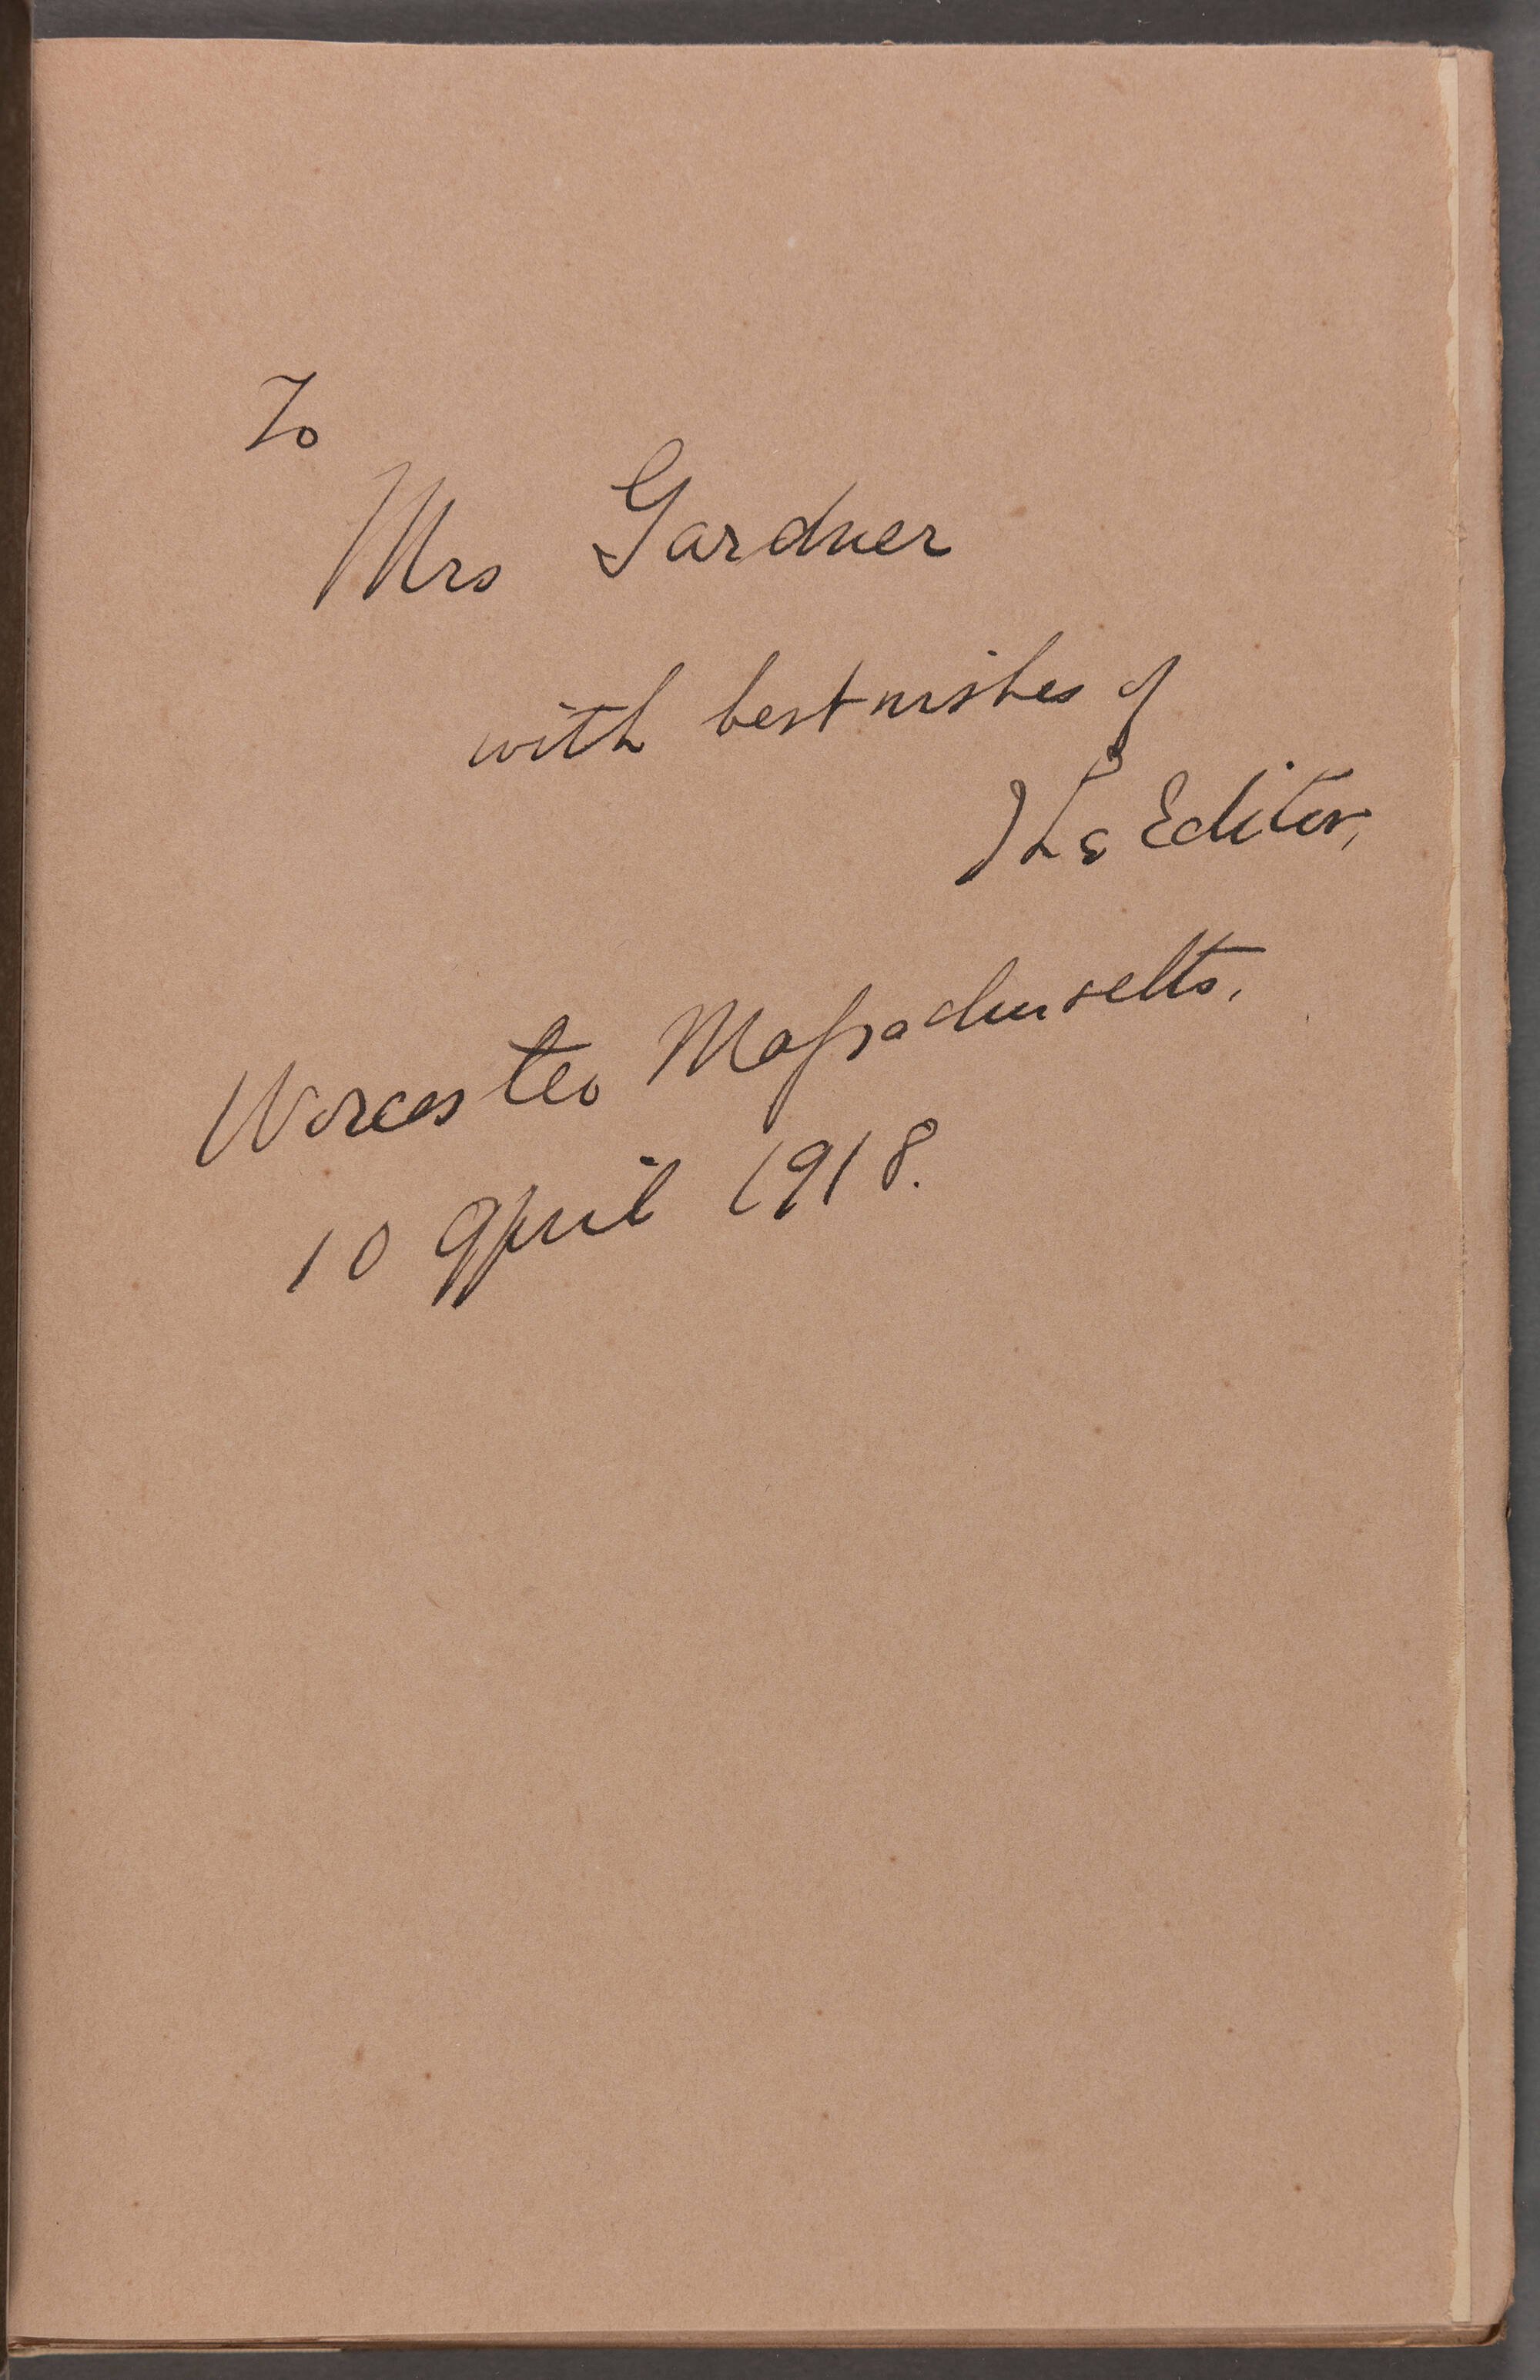 To
Mrs Gardner
with best wishes of
The Editor,
Worcester Massachusetts.
10 April 1918.